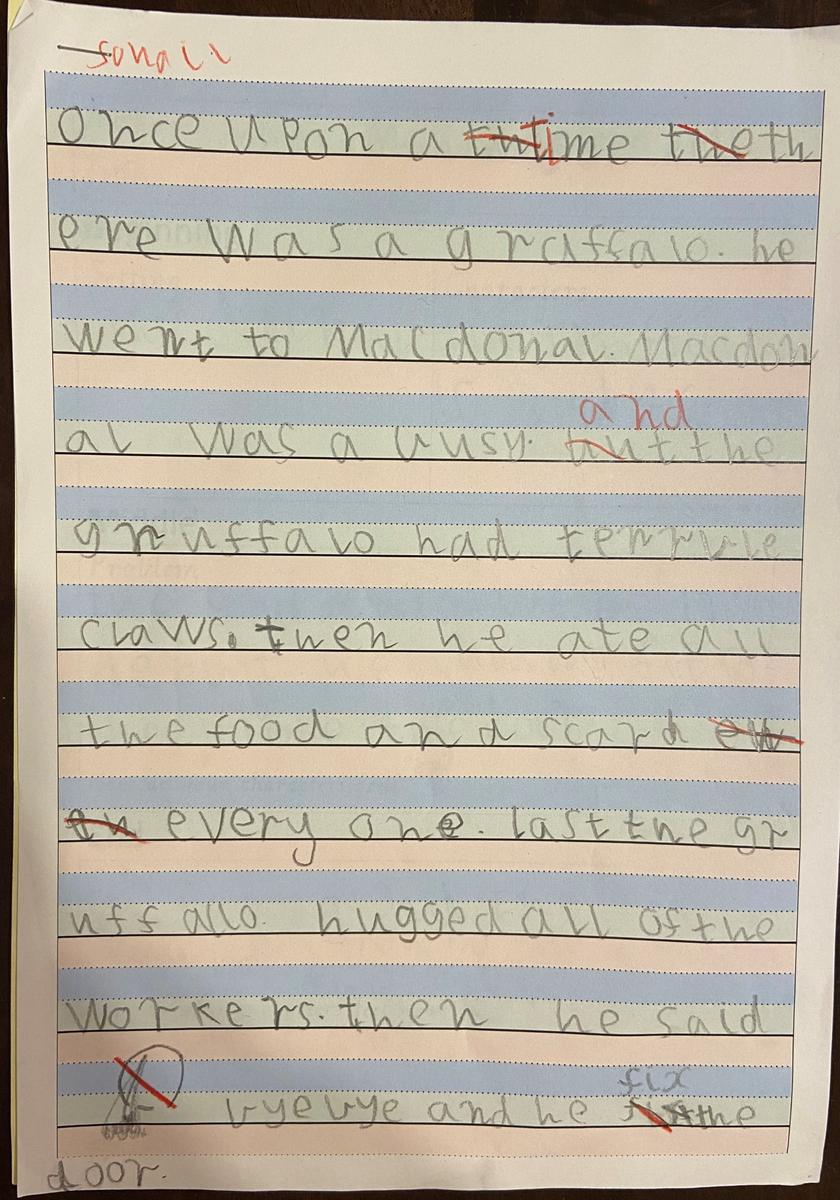 Once upon a time th
ere was a graffalo. he
went to Macdonal. Macdon
al was a busy. and the
gruffalo had terrible
claws. then he ate all
the food and scard
every one. last the gr
uffallo hugged all of the
workers. then he said
byebye and he fix the
door.